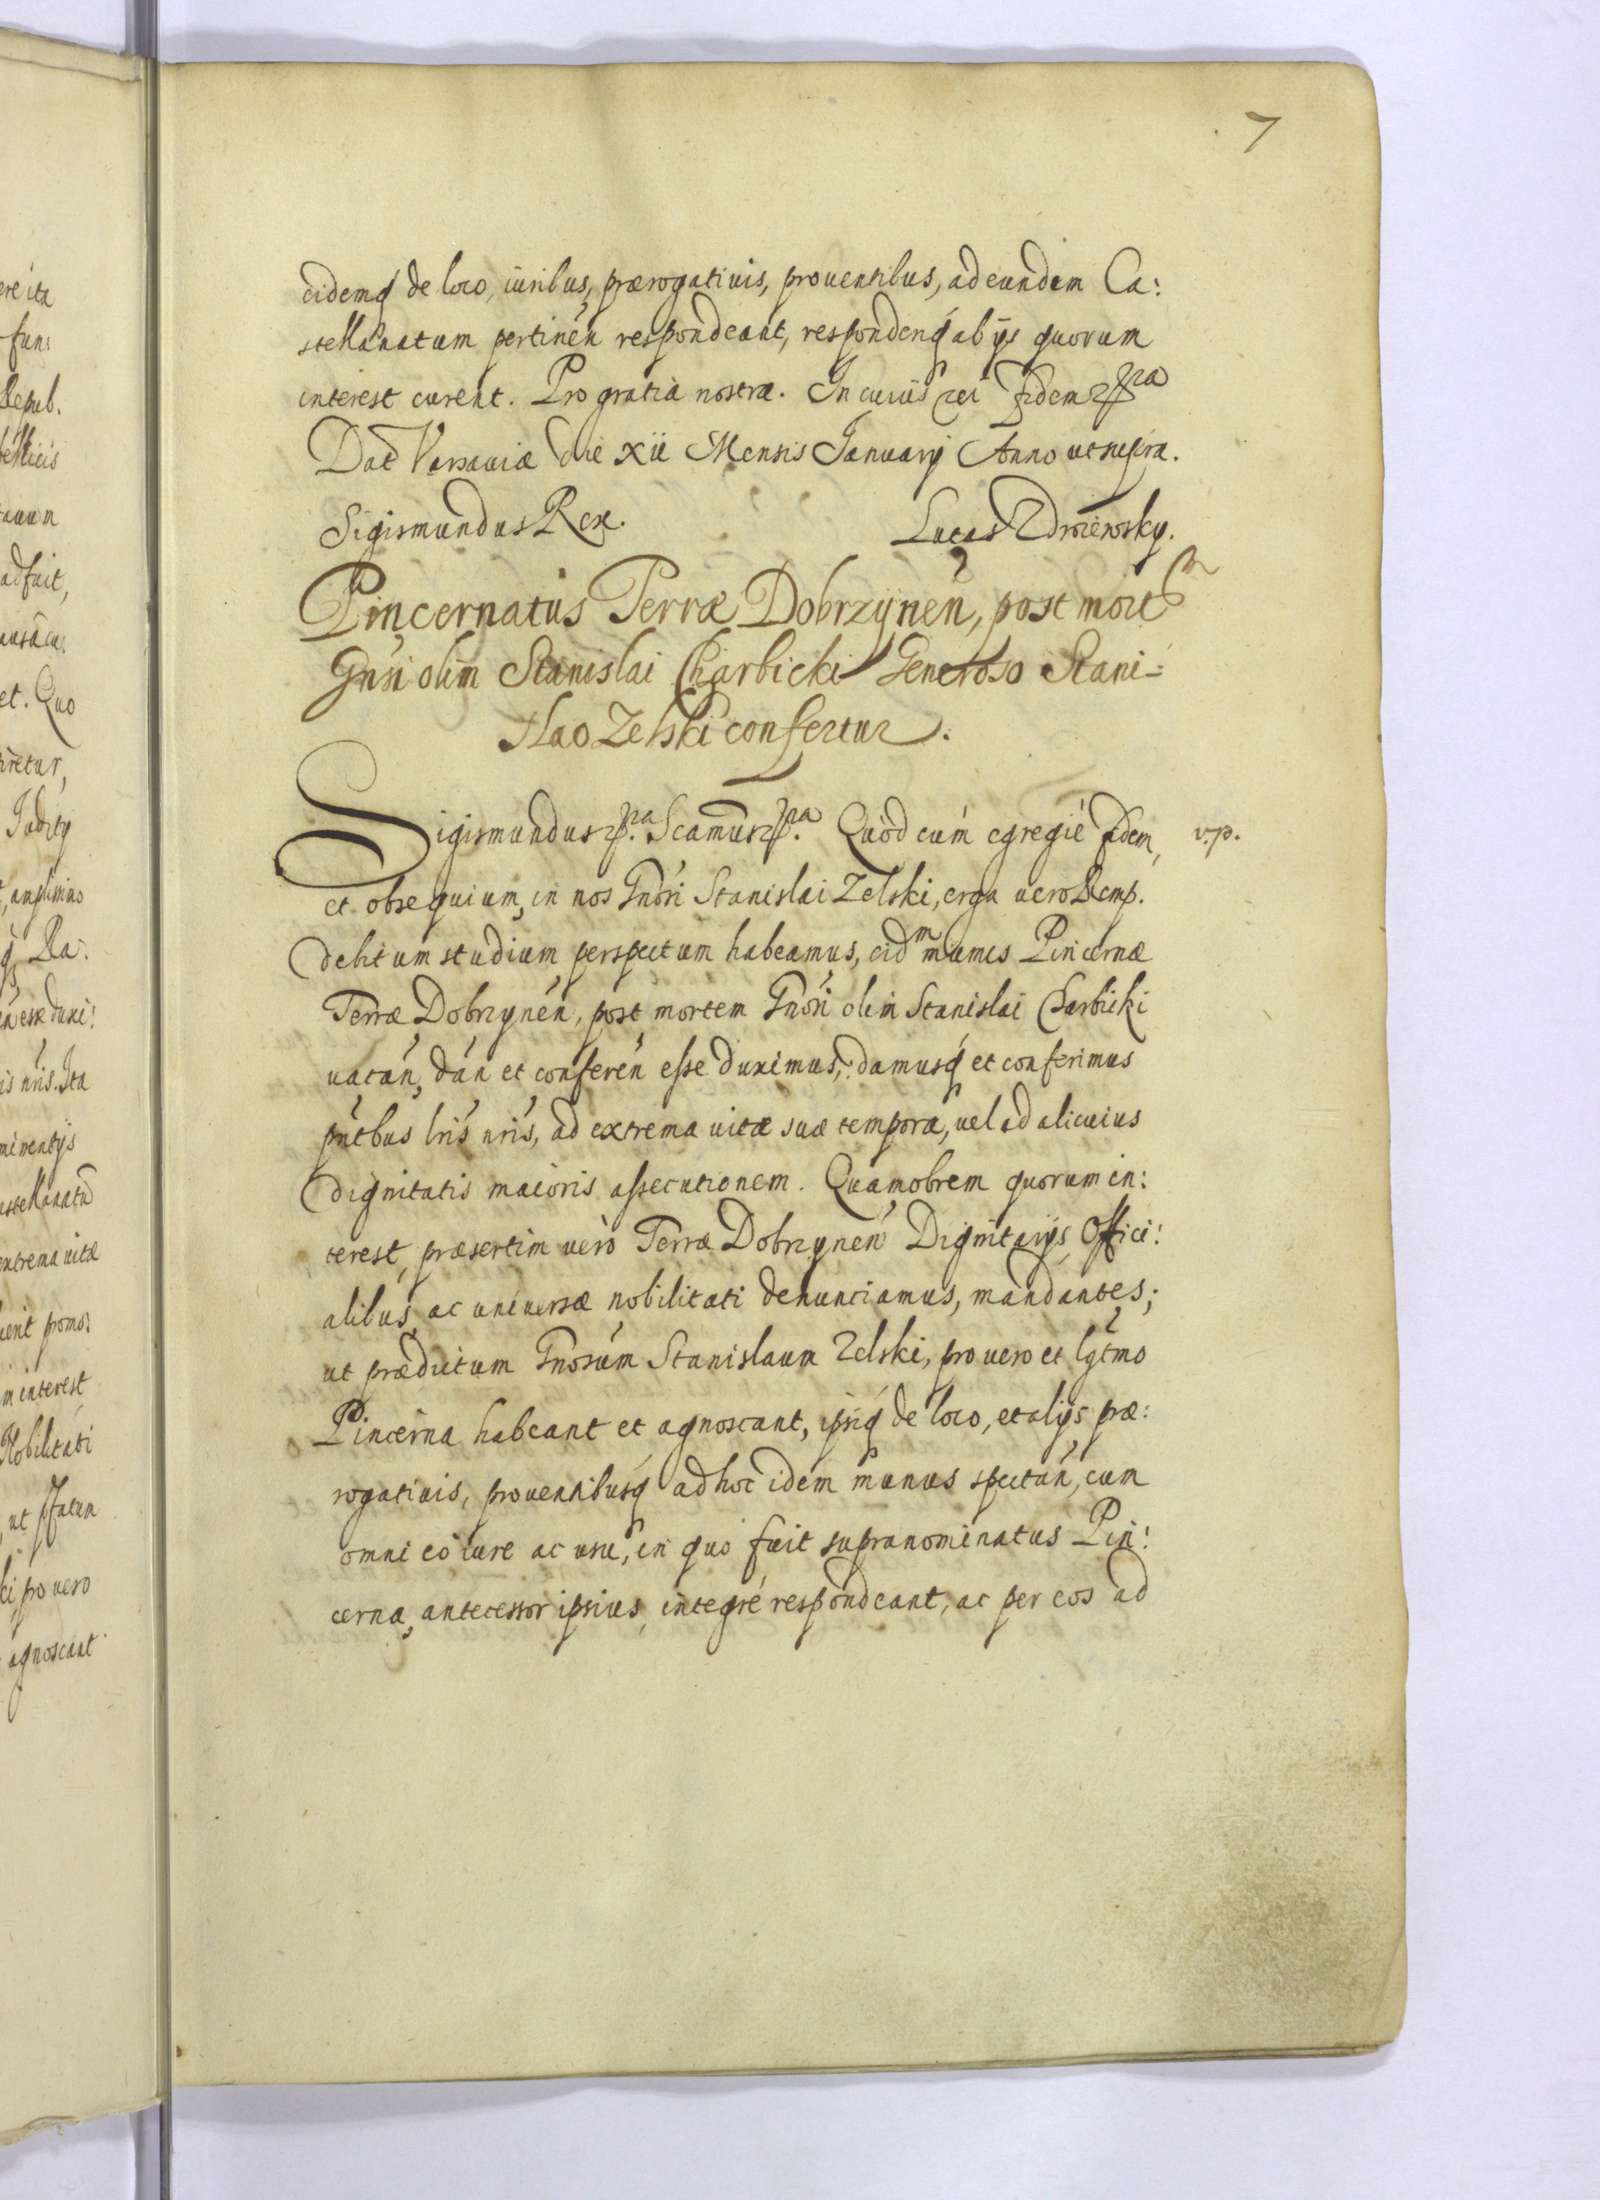 7
eidemq́ de loco, iuribus, prærogatiuis, prouentibus, ad eundem Ca:
stellanatum pertineń respondeant, respondeŕiq́ ab ijs quorum
interest curent. Pro gratia nostra. In cuius rei fidem
Dat̃ Varsauiæ die xii Mensis Januarij Anno ut supra.
Sigismundus Rex.
Lucas
Pincernatus Terræ Dobrzyneń, post mort̃
Gnśi olim Stanislai Charbicki Generoso Stani-
slao Zelski confertur.
Sigismundus Quòd cùm egregiè fidem, v.p.
et obsequium, in nos Gnósi Stanislai Zelski, erga uero Remp.
debitum studium perspectum habeamus, eidm munus Pincernæ
Terræ Dobrzyneń, post mortem Gnósi olim Stanislai Charbicki
uacań, dań et confereń esse duximus, damusq́ et conferimus
pńtbus lris nris, ad extrema uitæ suæ tempora, uel ad alicuius
dignitatis maioris assecutionem. Quamobrem quorum in:
terest, præsertim uerò Terræ Dobrzyneń Dignitarijs, Offici:
alibus, ac uniuersæ nobilitati denunciamus, mandantes;
ut prædictum Gnosúm Stanislaum Zelski, pro uero et lgt̃mo
Pincerna habeant et agnoscant, ipsiq́ de loco, et alijs præ:
rogatiuis, prouentibusq́ ad hoc idem munus spectań, cum
omni eo iure ac usu, in quo fuit supranominatus Pin:
cerna, antecessor ipsius, integrè respondeant, ac per eos ad